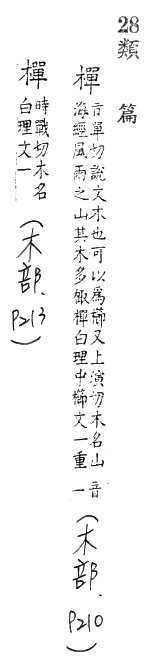 28
類篇
樿
旨單切說文木也可以為櫛又上演切木名山
海經風雨之山其木多棷樿白理中櫛文一重
音
一
(木部. P210)
樿
時戰切木名
白理文一
(木部. P213)